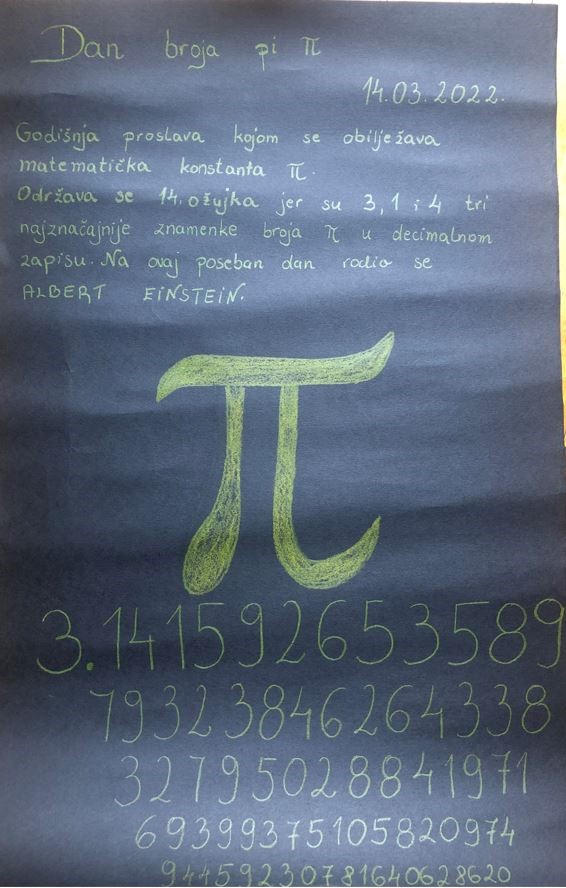 Dan broja pi π
14.03.2022.
Godišnja proslava kojom se obilježava
matematička konstanta π.
Održava se 14. ožujka jer su 3, 1 i 4 tri
najznačajnije znamenke broja π u decimalnom
zapisu. Na ovaj poseban dan rodio se
ALBERT EINSTEIN.
π
3.141592653589
79323846264338
32795028841971
69399375105820974
94459230781640628620